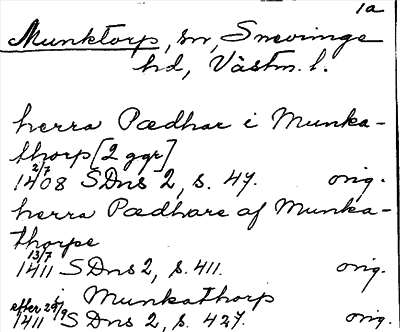 1a
Munktorp, sn, Snevringe
hd, Västm. l.
herra Pædhar i Munka-
thorp [2 ggr]
2/7 1408 SDns 2, s. 47. orig.
herra Pædhare af Munka-
thorpe
13/7 1411 SDns 2, s. 411. orig.
i Munkathorp
efter 29/9 1411 SDns 2, s. 427. orig.